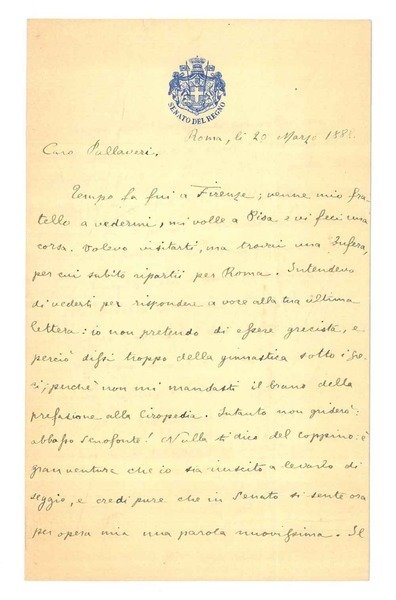 SENATO DEL REGNO
Roma, li 20 Marzo 188
Caro Pullaveri.
Tempo fa fui a Firenze; venne mio fra-
tello a vedermi, mi volle a Pisa e vi feci una
corsa. Volevo visitarti, ma trovai una
per cui subito ripartii per Roma. Intendevo
di vederti per rispondere a voce alla tua ultima
lettera: io non pretendo di essere grecista, e
perciò dissi troppo della ginnastica sotto i
perchè non mi mandasti il brano della
prefazione alla Ciropedia. Intanto non griderò:
abbasso Senofonte! Nulla ti dico del Coppino: è
gran ventura che io sia riuscito a levarlo di
seggio, e credi pure che in Senato si sente ora
per opera mia una parola nuovissima. Il